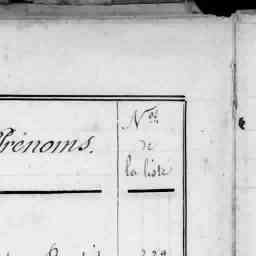 Prénoms.
Nos
de
la liste